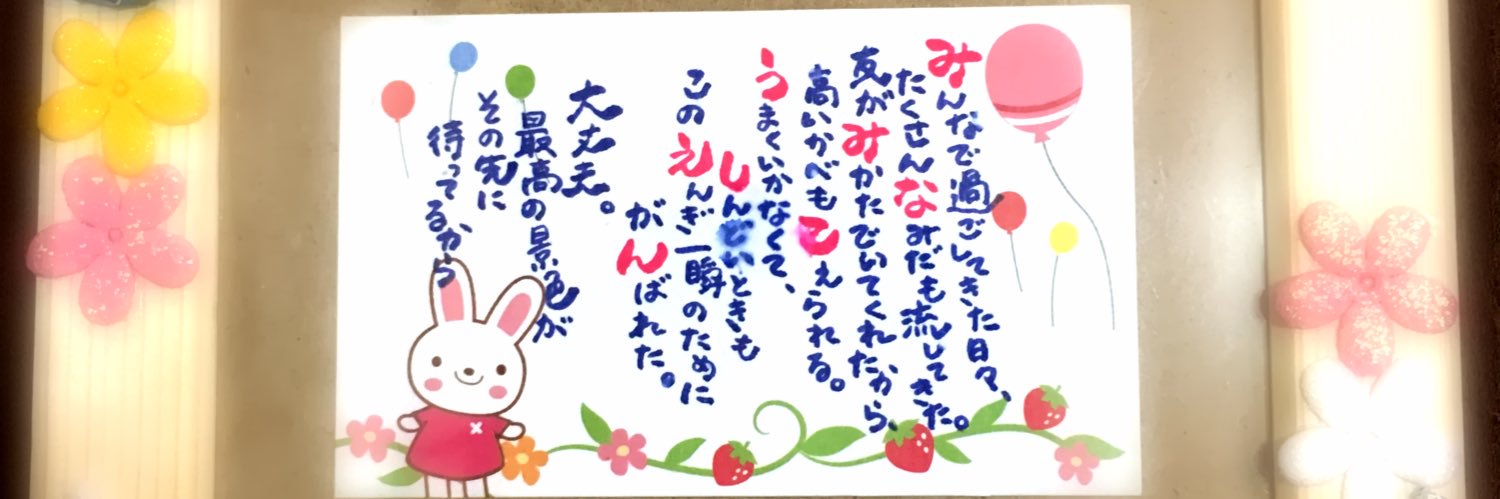 みんなで過ごしてきた日々、
たくさんなみだも流してきた。
友がみかたでいてくれたから、
高いかべもこえられる。
うまくいかなくて、
しんどいときも
このえんぎ一瞬のために
がんばれた。
大丈夫。
最高の景色が
その先に
待ってるから